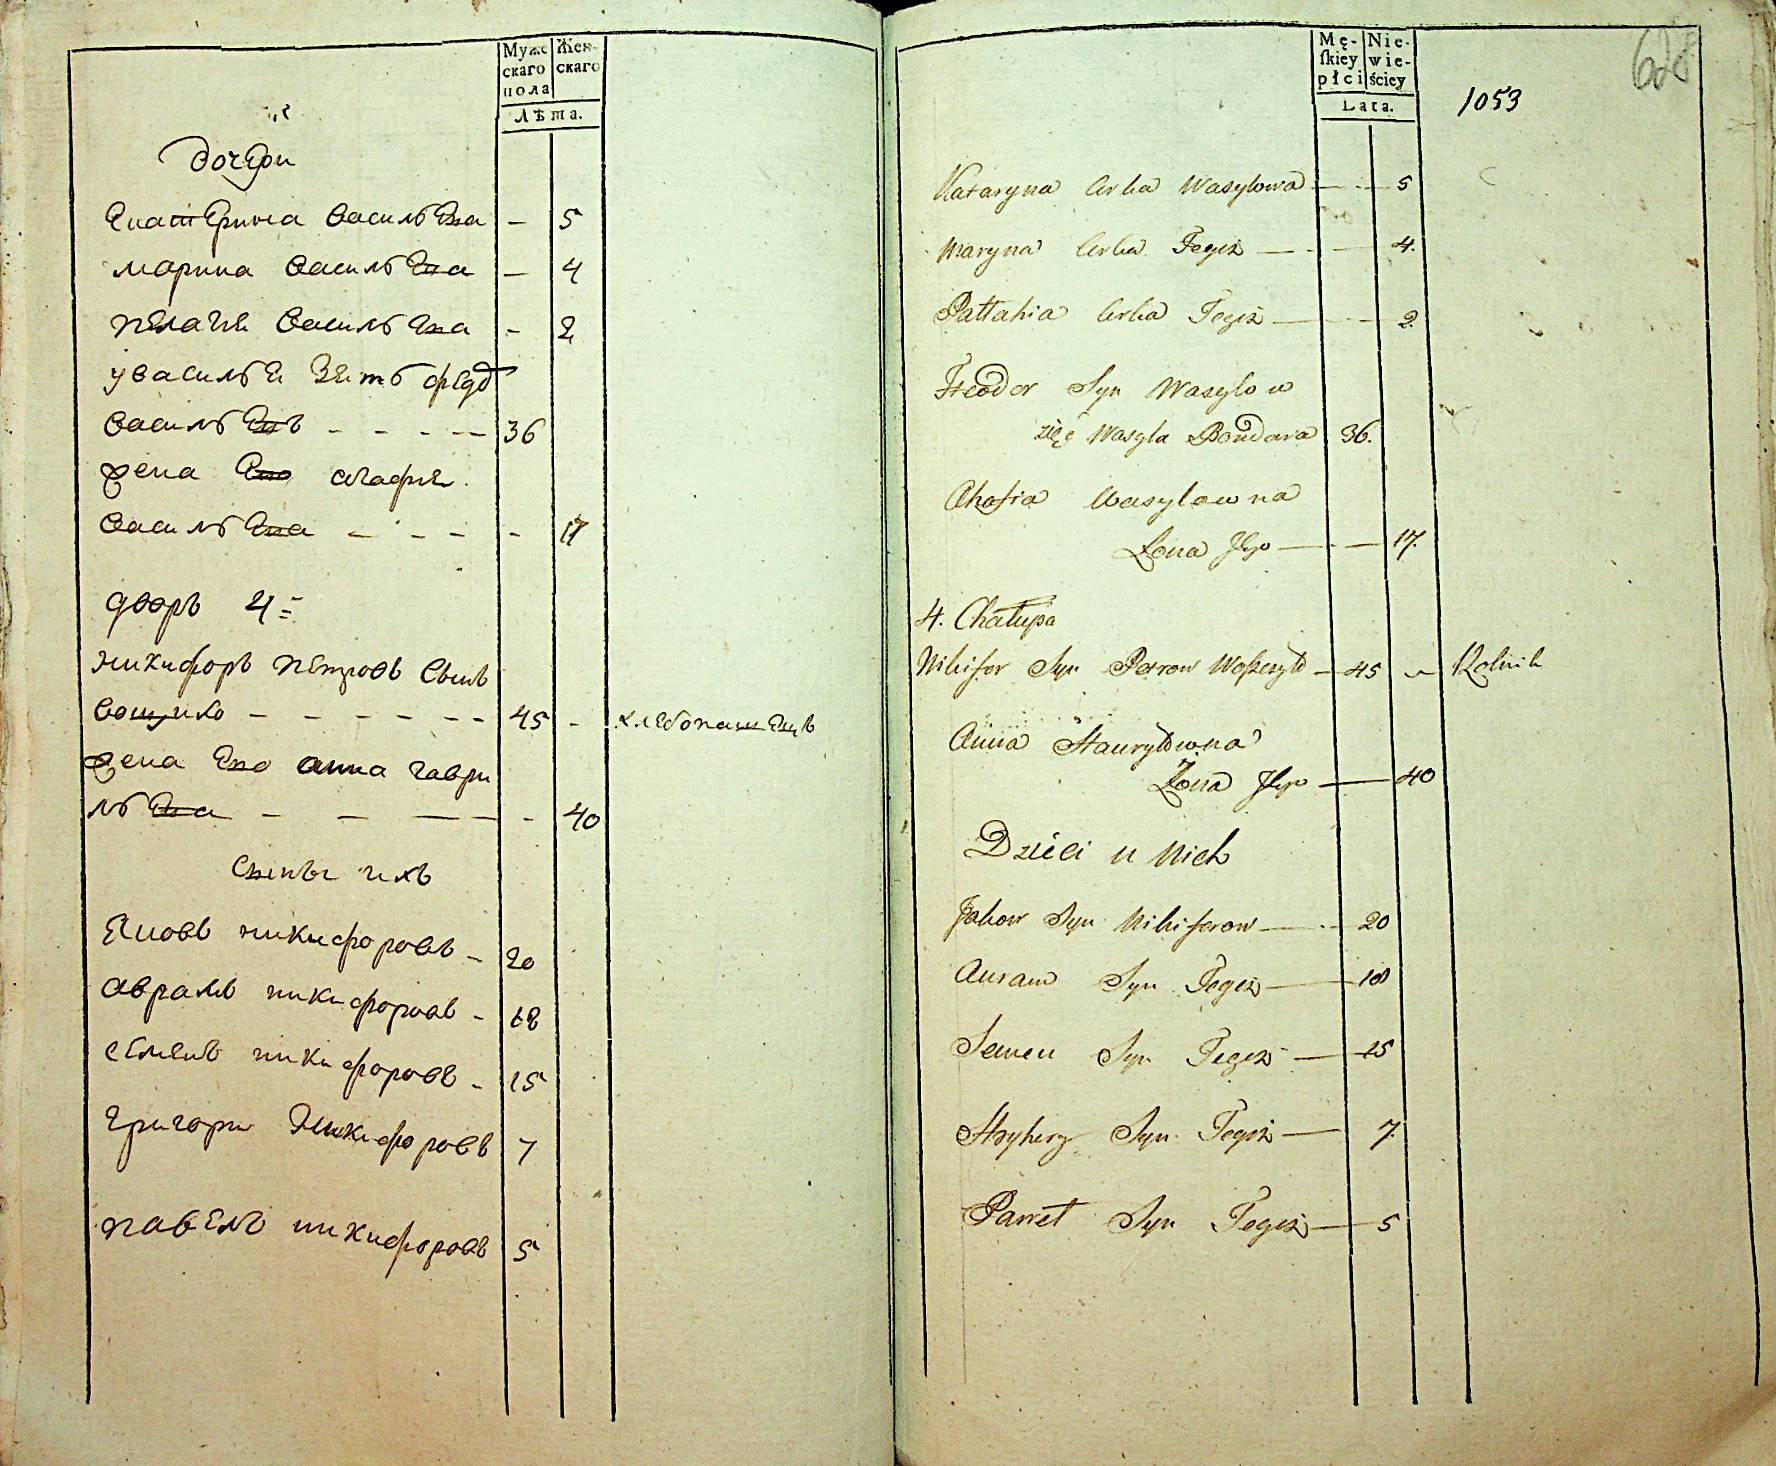 Муже
скаго
пола
Жен-
скаго
Лѣта.
дочери
Екатерина василь Ева - 5
марина василь Ева - 4
пелагея василь Ева - 2
у василья зять федо
василь Евъ - - - - 36
жена Ево агафья
василь Ева - - - - 17
дворъ 4=
никифоръ петровъ сынъ
вощило - - - - - - 45 - хлебопашецъ
жена Ево анна гаври
ль Ева - - - - - 40
сыны ихъ
Яковъ никифоровъ - 20
аврамъ никифоровъ - 18
семенъ никифоровъ - 15
григори никифоровъ 7
павелъ никифоровъ 5
Mę-
skiey
płci
Nie-
wie-
ściey
Lata.
1053
628
Kataryna Corka Wasylowa — 5
Maryna Corka Tegoż — 4.
Pałłahia Corka Tegoż — 2.
Fteodor Syn Wasylow
zięć Wasyla Bondara 36.
Ahafia Wasylowna
Żona Jego — 17.
4. Chałupa
Nikifor Syn Petrow — 45 — Rolnik
Anna Hauryłowna
Żona Jego — 40
Dzieci u Nich
Jakow Syn Nikiforow — 20
Auram Syn Tegoż — 18
Semen Syn Tegoż — 15
Hryhory Syn Tegoż — 7.
Paweł Syn Tegoż — 5